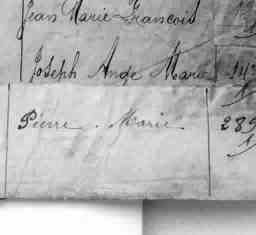 Jean Marie-Francois
Joseph Ange Marie
Pierre. Marie. 289